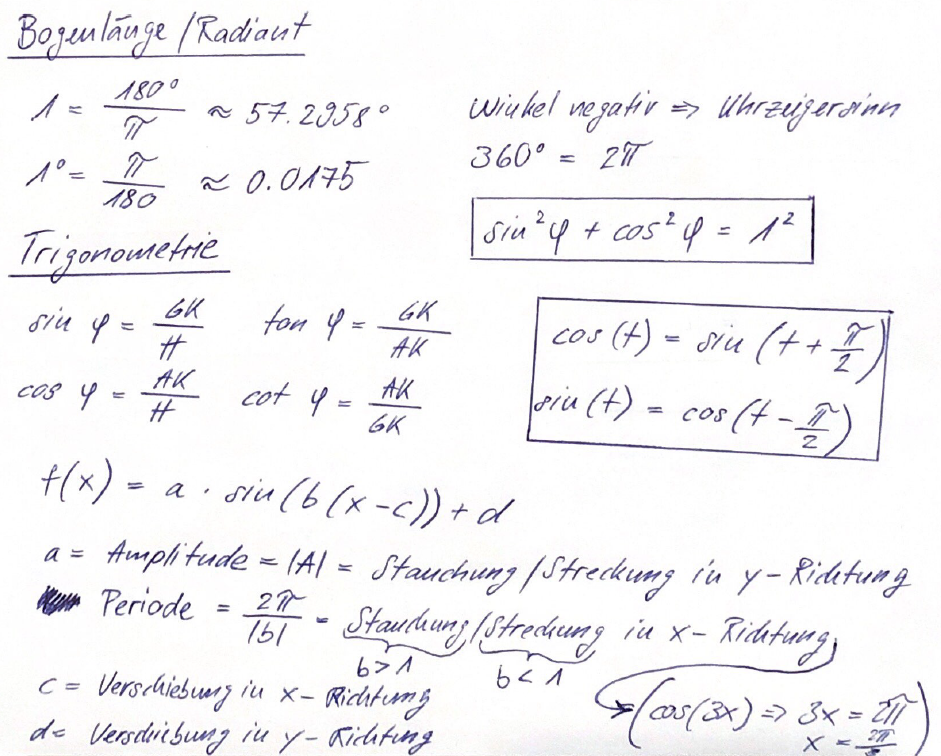 Bogenlänge/Radiant
1 = 180°/π ≈ 57.2958°
1° = π/180 ≈ 0.0175
Winkel negativ ⇒ Uhrzeigersinn
360° = 2π
sin²φ + cos²φ = 1²
Trigonometrie
sin φ = GK/H   tan φ = GK/AK
cos φ = AK/H   cot φ = AK/GK
cos(t) = sin(t + π/2)
sin(t) = cos(t - π/2)
f(x) = a · sin(b(x-c)) + d
a = Amplitude = |A| = Stauchung/Streckung in y-Richtung
Periode = 2π/|b| = Stauchung/Streckung in x-Richtung
b>1   b<1
c = Verschiebung in x-Richtung
d = Verschiebung in y-Richtung
(cos(3x) ⇒ 3x = 2π
x = 2π/